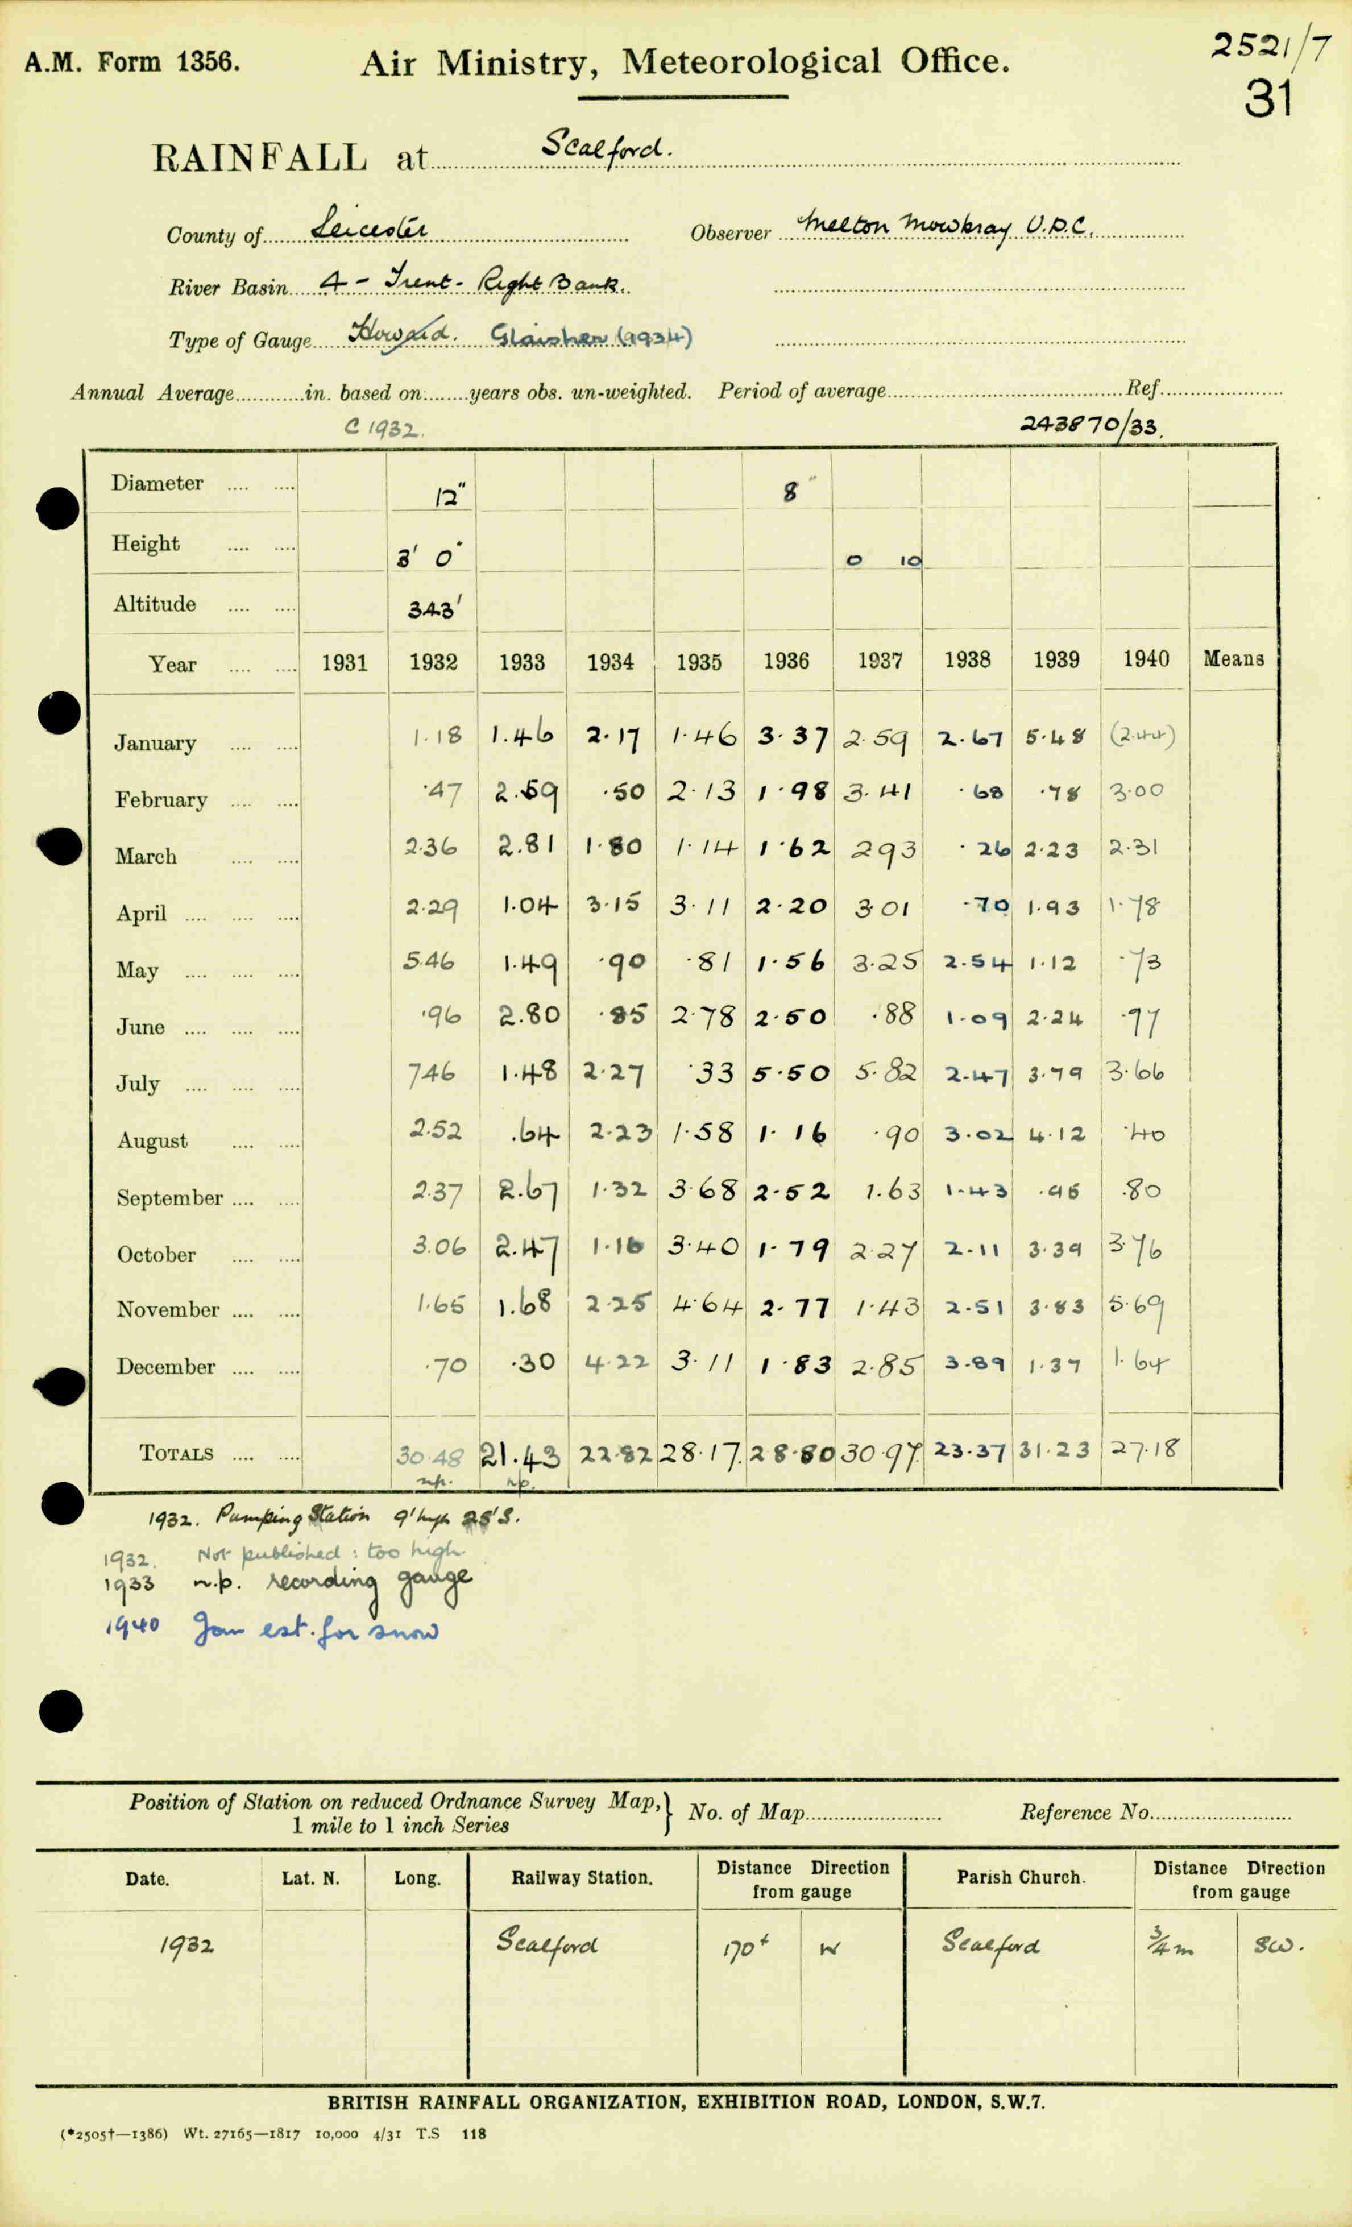 2521/7
A.M. Form 1356. Air Ministry, Meteorological Office.
31
RAINFALL at Scalford.
County of Leicester Observer Melton Mowbray U.D.C.
River Basin 4 - Trent - Right Bank.
Type of Gauge Howard. Glaisher (1934)
Annual Average in. based on years obs. un-weighted. Period of average Ref.
C 1932. 243870/33.
Diameter .... .... 12" 8"
Height .... .... 3' 0" 0 10
Altitude .... .... 343'
Year .... .... 1931 1932 1933 1934 1935 1936 1937 1938 1939 1940 Means
January .... .... 1.18 1.46 2.17 1.46 3.37 2.59 2.67 5.48 (2.44)
February .... .... .47 2.59 .50 2.13 1.98 3.41 .68 .78 3.00
March .... .... 2.36 2.81 1.80 1.14 1.62 2.93 .26 2.23 2.31
April .... .... .... 2.29 1.04 3.15 3.11 2.20 3.01 .70 1.93 1.78
May .... .... .... 5.46 1.49 .90 .81 1.56 3.25 2.54 1.12 .73
June .... .... .... .96 2.80 .85 2.78 2.50 .88 1.09 2.24 .77
July .... .... .... 7.46 1.48 2.27 .33 5.50 5.82 2.47 3.79 3.66
August .... .... 2.52 .64 2.23 1.58 1.16 .90 3.02 4.12 .40
September .... .... 2.37 2.67 1.32 3.68 2.52 1.63 1.43 .95 .80
October .... .... 3.06 2.47 1.16 3.40 1.79 2.27 2.11 3.39 3.76
November .... .... 1.65 1.68 2.25 4.64 2.77 1.43 2.51 3.83 5.69
December .... .... .70 .30 4.22 3.11 1.83 2.85 3.89 1.37 1.64
TOTALS .... .... 30.48 21.43 22.82 28.17 28.80 30.97 23.37 31.23 27.18
n.p. n.p.
1932. Pumping Station 9' high 25' S.
1932. Not published : too high
1933 n.p. recording gauge
1940 Jan est. for snow
Position of Station on reduced Ordnance Survey Map,} No. of Map Reference No.
1 mile to 1 inch Series
Date. Lat. N. Long. Railway Station. Distance Direction from gauge Parish Church. Distance Direction from gauge
1932 Scalford 170+ W Scalford 3/4 m SW.
BRITISH RAINFALL ORGANIZATION, EXHIBITION ROAD, LONDON, S.W.7.
(*2505†—1386) Wt. 27165—1817 10,000 4/31 T.S 118